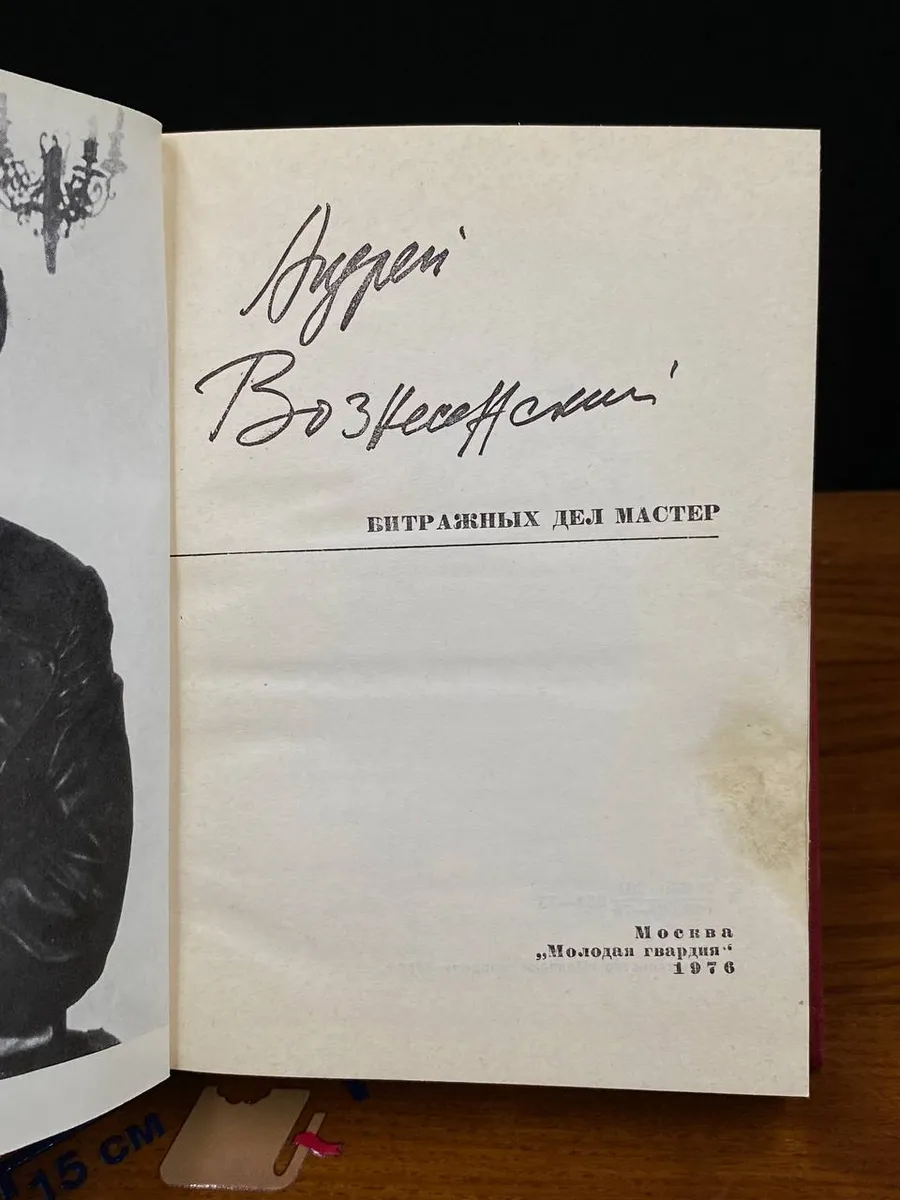 Андрей
Вознесенский
ВИТРАЖНЫХ ДЕЛ МАСТЕР
Москва
„Молодая гвардия“
1976
15 см